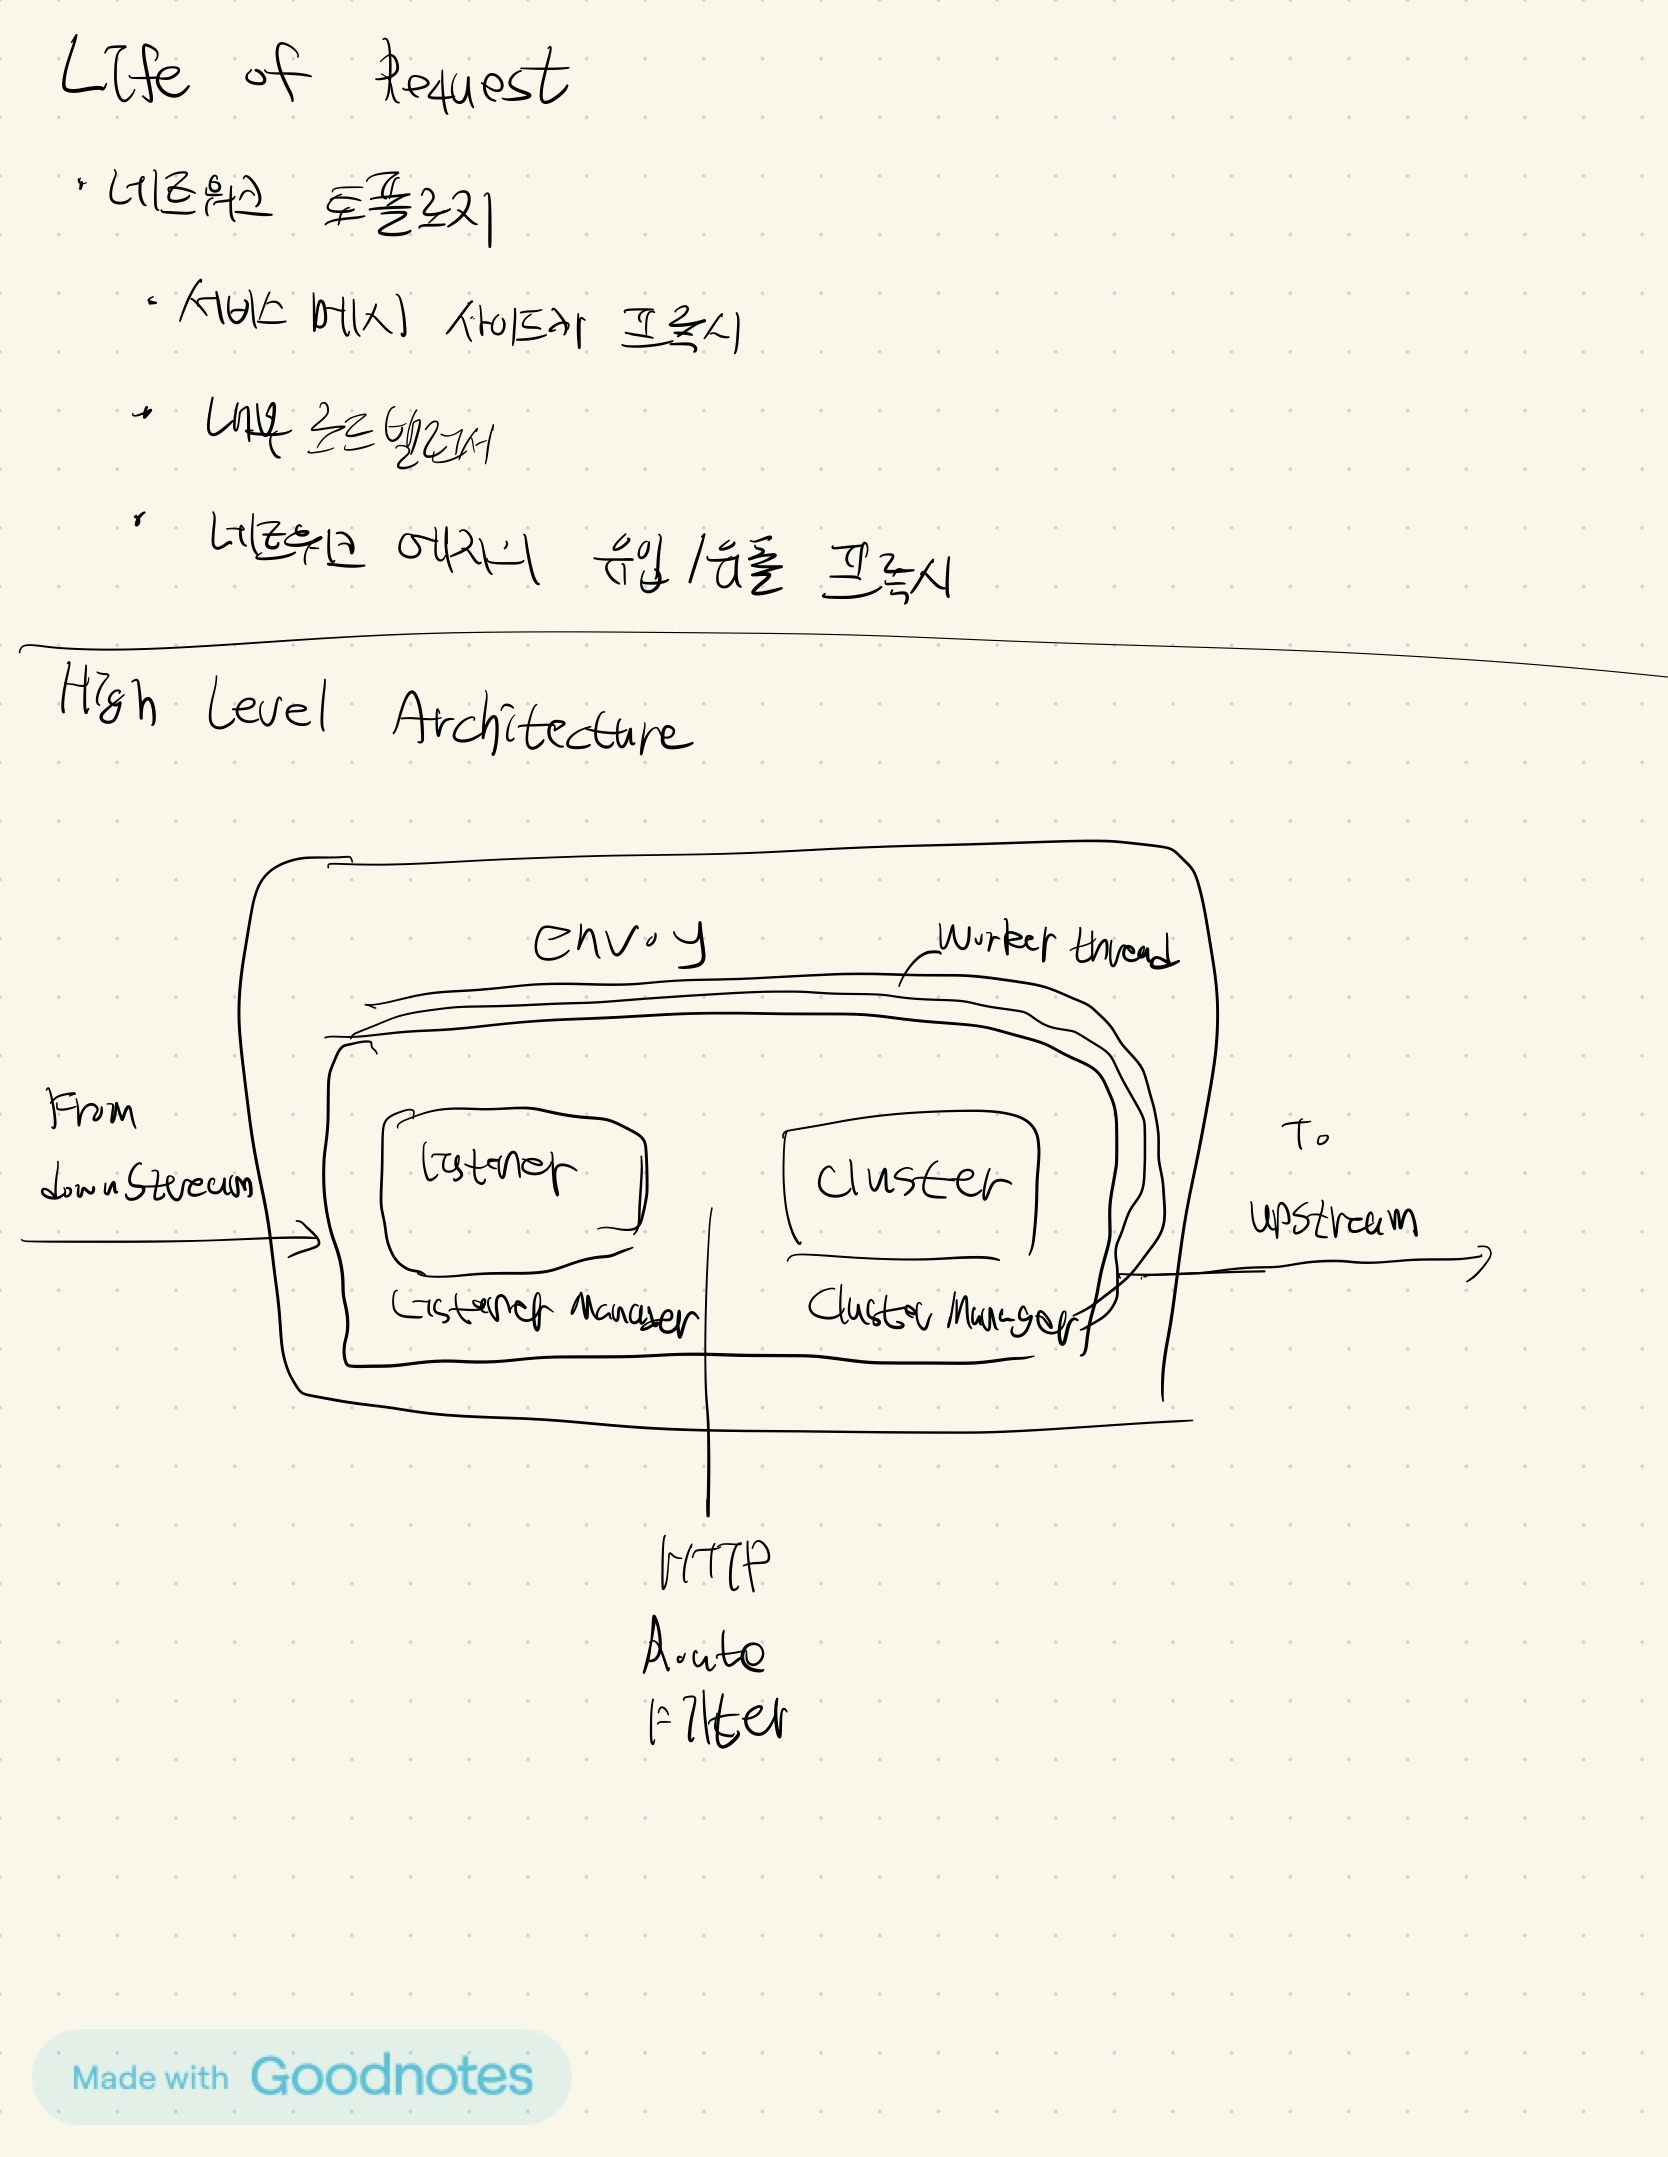 Life of Request
· 네트워크 토폴로지
· 서비스 메시 사이드카 프록시
· 내부 로드밸런서
· 네트워크 에지의 유입/유출 프록시
High Level Architecture
envoy
Worker thread
From
downstream
Listener
Cluster
To
upstream
Listener Manager
Cluster Manager
HTTP
Route
Filter
Made with Goodnotes